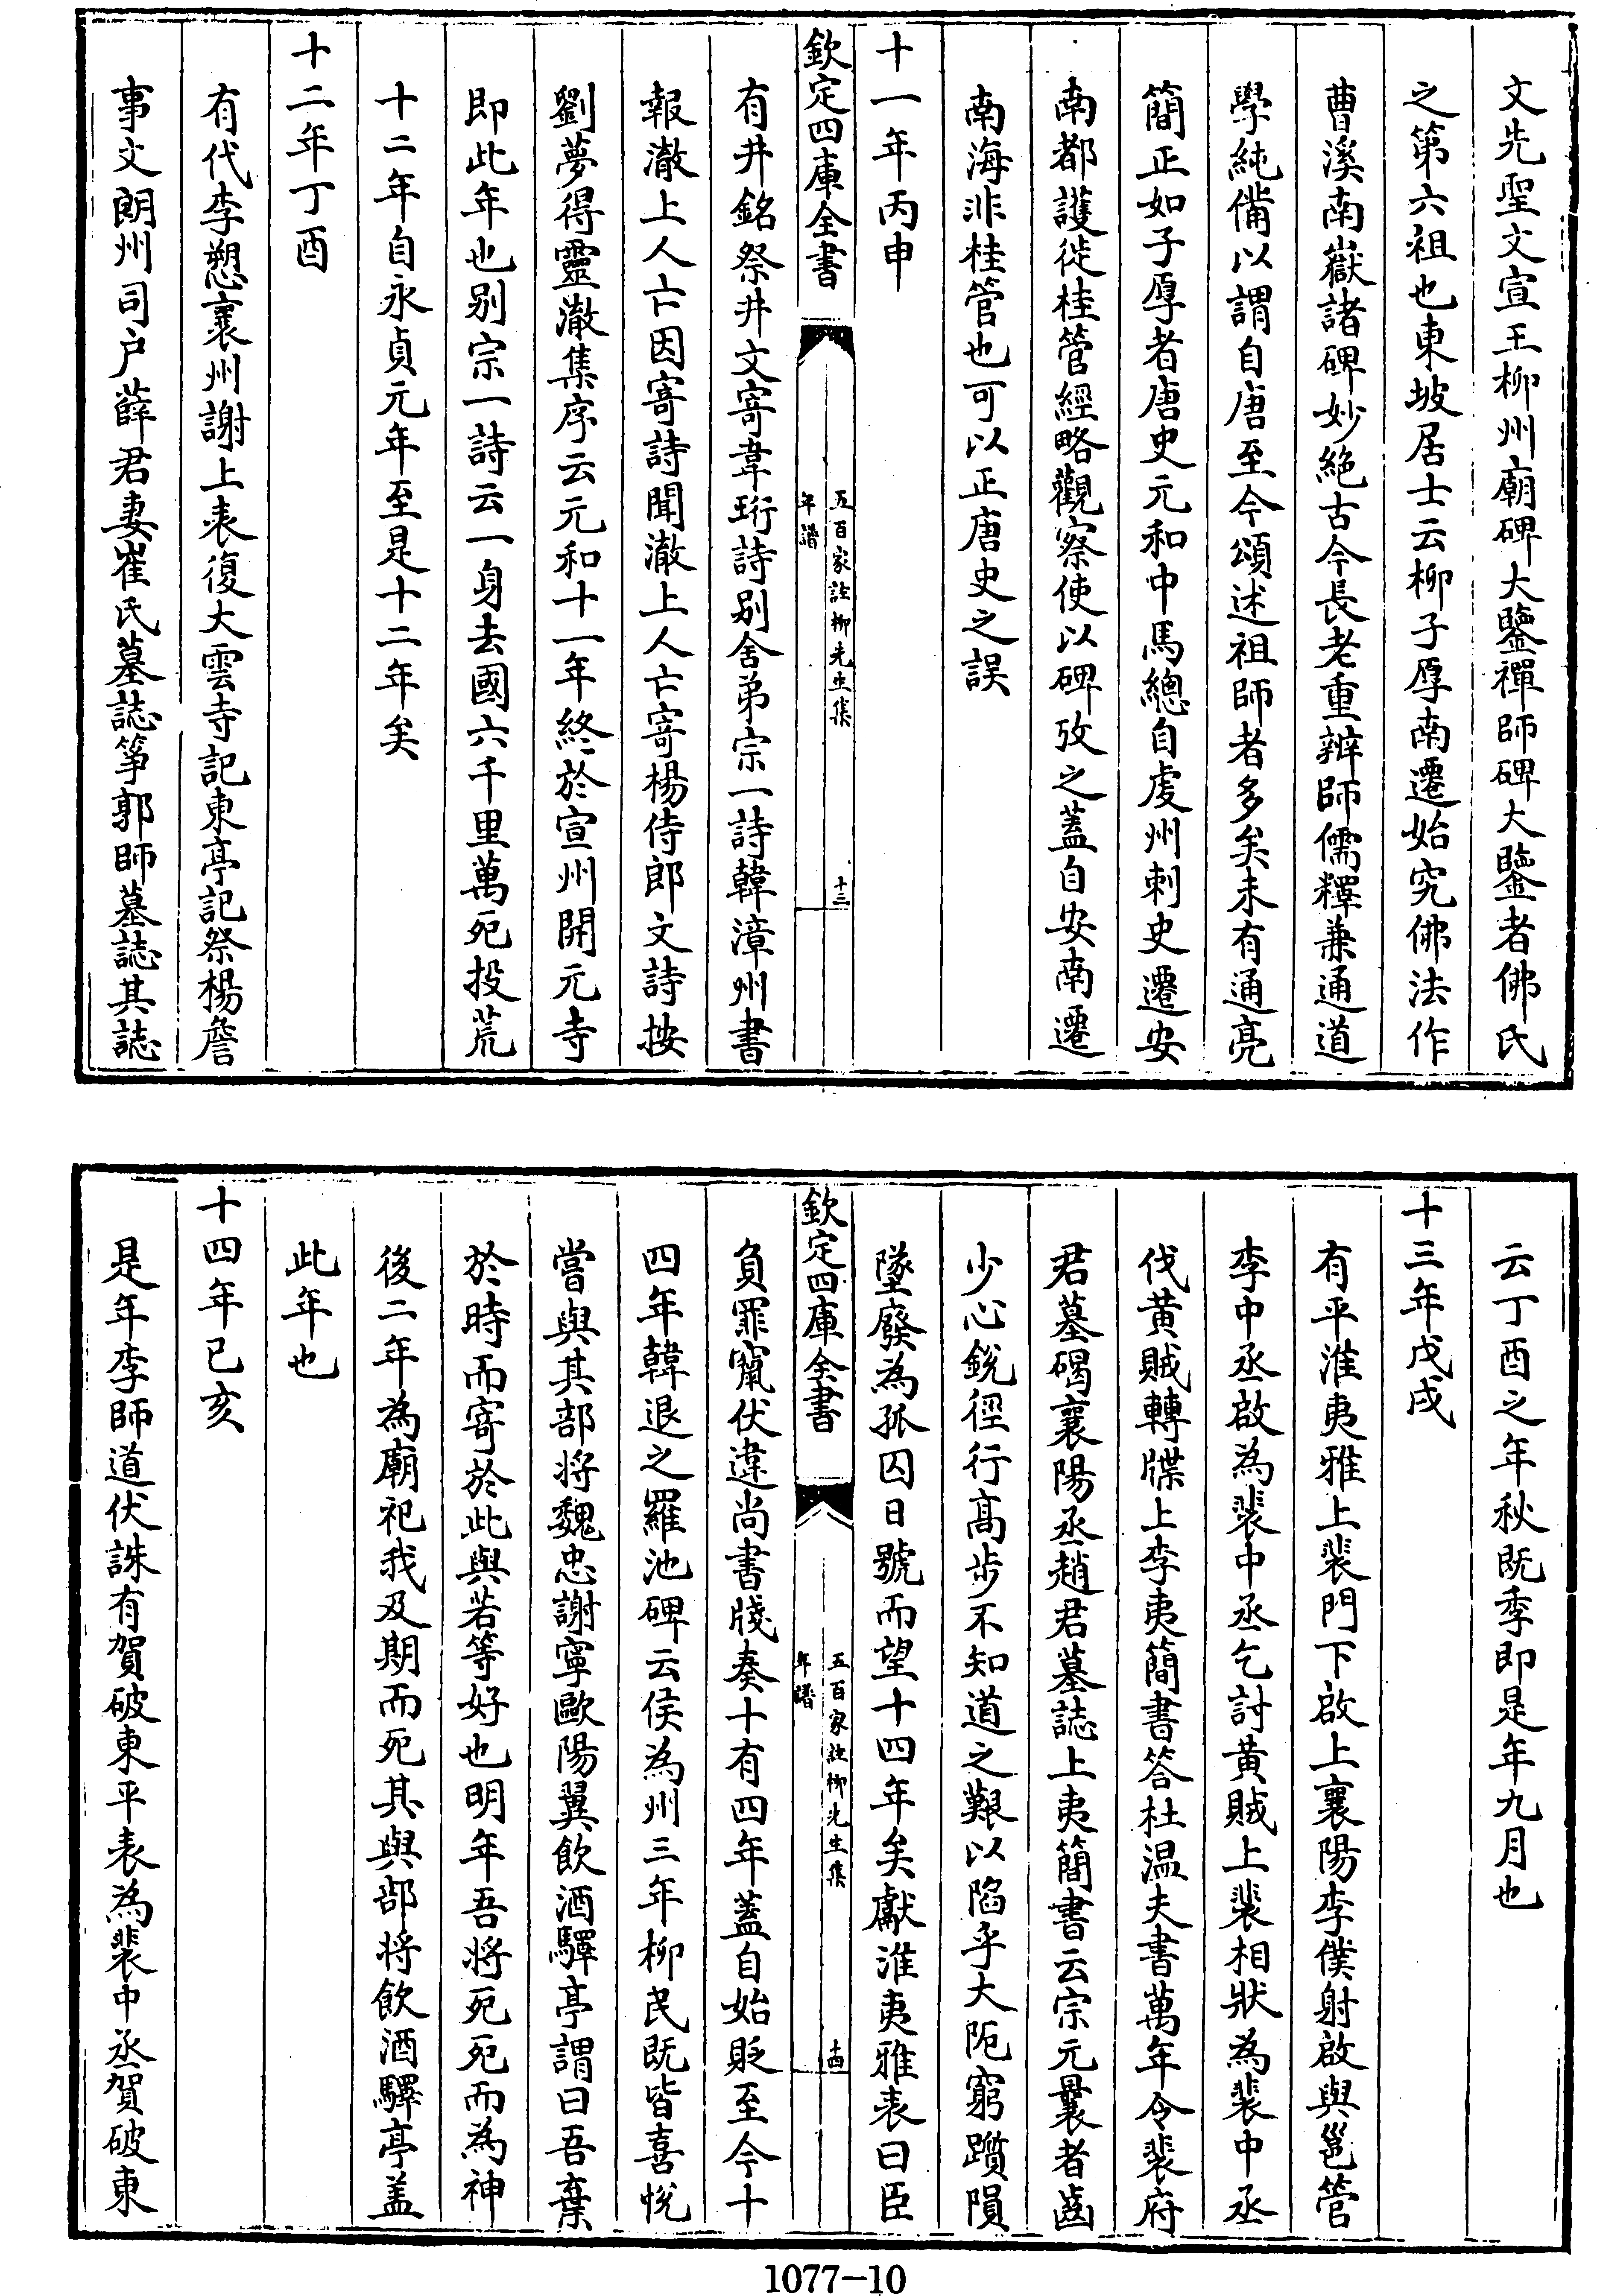 文先聖文宣王柳州廟碑大鑒禪師碑大鑒者佛氏
之第六祖也東坡居士云柳子厚南遷始究佛法作
曹溪南嶽諸碑妙絶古今長老重辨師儒釋兼通道
學純備以謂自唐至今頌述祖師者多矣未有通亮
簡正如子厚者唐史元和中馬總自虔州刺史遷安
南都護徙桂管經略觀察使以碑攷之蓋自安南遷
南海非桂管也可以正唐史之誤
十一年丙申
欽定四庫全書
五百家註柳先生集
年譜
十三
有井銘祭井文寄韋珩詩别舍弟宗一詩韓漳州書
報澈上人亡因寄詩聞澈上人亡寄楊侍郎文詩按
劉夢得靈澈集序云元和十一年終於宣州開元寺
即此年也别宗一詩云一身去國六千里萬死投荒
十二年自永貞元年至是十二年矣
十二年丁酉
有代李愬襄州謝上表復大雲寺記東亭記祭楊詹
事文朗州司户薛君妻崔氏墓誌筝郭師墓誌其誌
云丁酉之年秋既季即是年九月也
十三年戊戌
有平淮夷雅上裴門下啟上襄陽李僕射啟與邕管
李中丞啟為裴中丞乞討黄賊上裴相狀為裴中丞
伐黄賊轉牒上李夷簡書答杜温夫書萬年令裴府
君墓碣襄陽丞趙君墓誌上夷簡書云宗元曩者齒
少心鋭徑行高步不知道之艱以陷乎大阨窮躓隕
墜廢為孤囚日號而望十四年矣獻淮夷雅表曰臣
欽定四庫全書
五百家註柳先生集
年譜
十四
負罪竄伏違尚書牋奏十有四年蓋自始貶至今十
四年韓退之羅池碑云侯為州三年柳民既皆喜悦
嘗與其部將魏忠謝寧歐陽翼飲酒驛亭謂曰吾棄
於時而寄於此與若等好也明年吾將死死而為神
後二年為廟祀我及期而死其與部將飲酒驛亭盖
此年也
十四年已亥
是年李師道伏誅有賀破東平表為裴中丞賀破東
1077-10